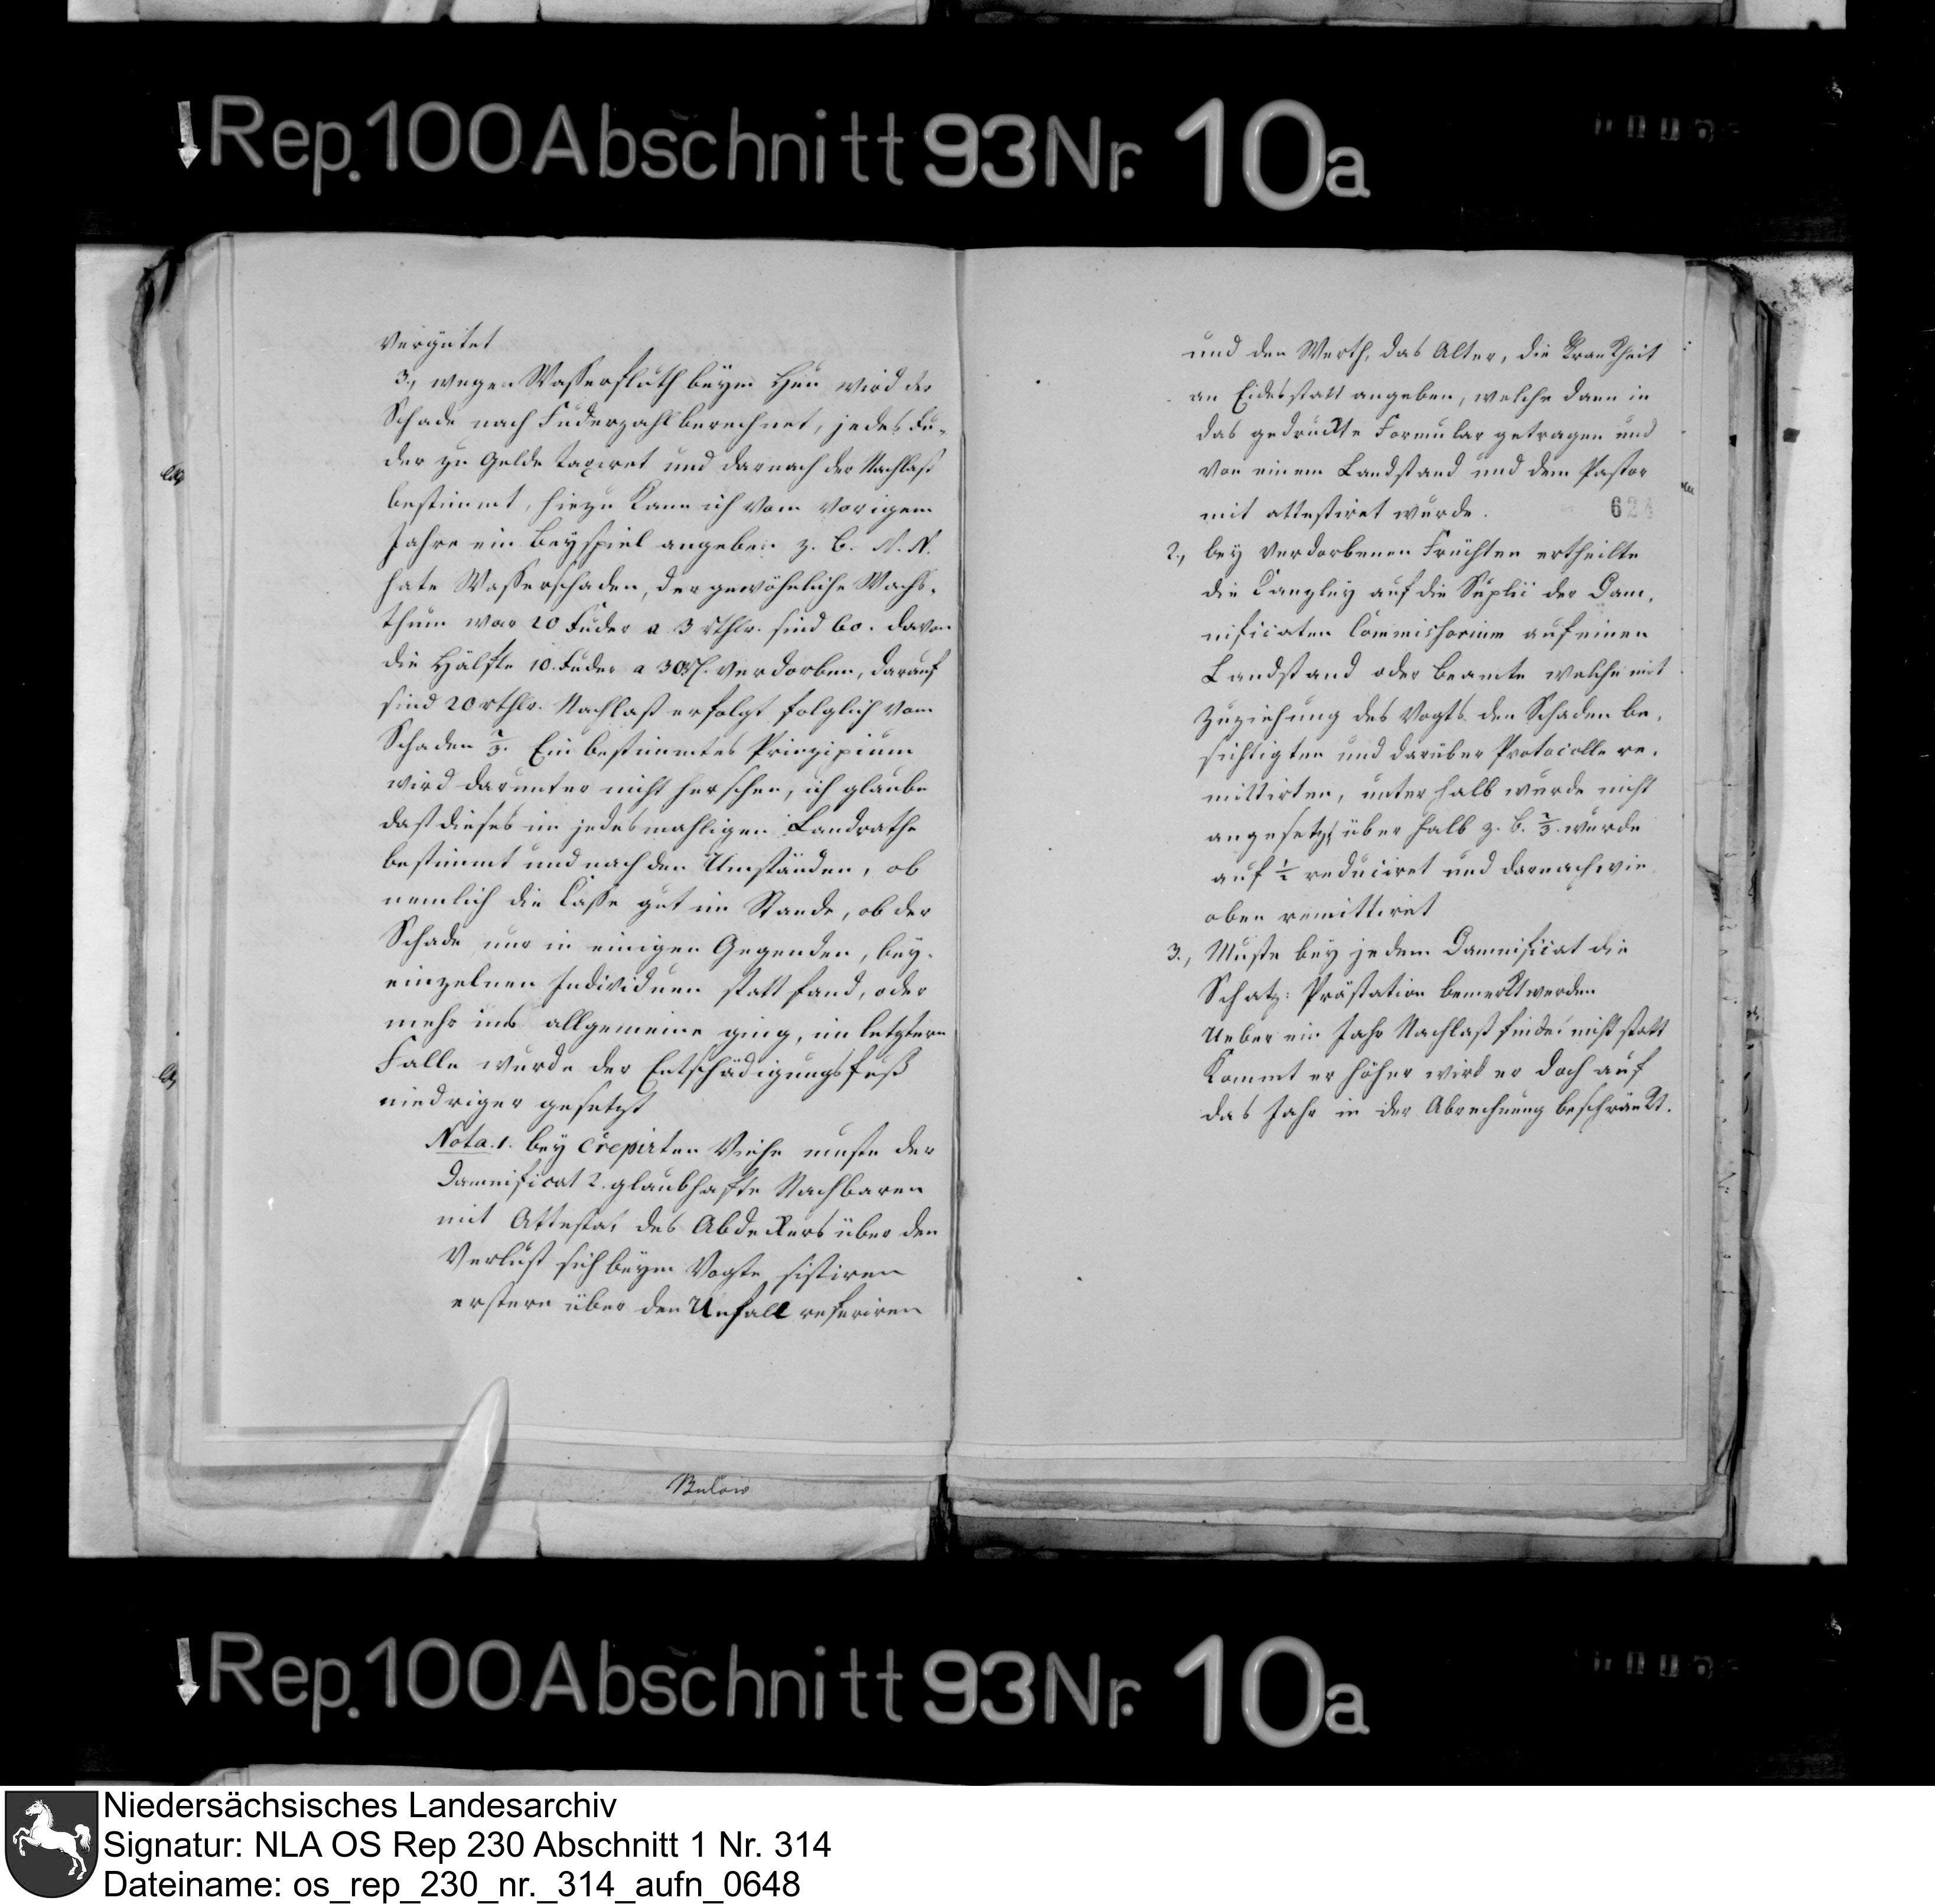 Rep. 100 Abschnitt 93 Nr. 10a
vergütet
3., wegen Wasserfluth beym Heu wird der
Schade nach Fuderzahl berechnet, jedes Fu-
der zu Gelde taxiret und darnach der Nachlaß
bestimmt, hiezu kann ich vom vorigem
Jahre ein Beyspiel angeben z. B. N. N.
hate Wasserschaden, der gewöhnliche Wachs-
thum war 20 Fuder a 3 rthlr. sind 60. davon
die Hälfte 10. Fuder a 30 verdorben, darauf
sind 20 rthlr. Nachlaß erfolgt folglich vom
Schaden 2/3. Ein bestimmtes Prinzipium
wird darunter nicht herschen, ich glaube
daß dieses im jedesmahligen Landrathe
bestimmt und nach den Umständen, ob
nemlich die Casse gut im Stande, ob der
Schade nur in einigen Gegenden, bey-
einzelnen Individuen statt fand, oder
mehr ins allgemeine ging, im letztern
Falle wurde der Entschädigungsfuß
niedriger gesetzt
Nota. 1. bey crepirten Viehe muste der
Damnificat 2. glaubhafte Nachbaren
mit Attestat des Abdeckers über den
Verlust sich beym Vogte sistiren
erstere über den Unfall referiren
Bulow
und den Werth, das Alter, die Krankheit
an Eidesstatt angeben, welche dann in
das gedruckte Formular getragen und
von einem Landstand und dem Pastor
mit attestiret wurde.
624
2., bey verdorbenen Früchten ertheilte
die Canzley auf die Suplic der Dam-
nificaten Commissorium auf einen
Landstand oder Beamte welche mit
Zuziehung des Vogts den Schaden be-
sichtigten und darüber Protocolle re-
mittirten, unter halb wurde nicht
angesetzt über halb z. B. 2/3. wurde
auf 1/2 reduciret und darnach wie
oben remittiret
3., Muste bey jedem Damnificat die
Schatz: Prästation bemerkt werden
Ueber ein Jahr Nachlaß findet nicht statt
Kommt er höher wird er doch auf
das Jahr in der Abrechnung beschränkt.
Rep. 100 Abschnitt 93 Nr. 10a
Niedersächsisches Landesarchiv
Signatur: NLA OS Rep 230 Abschnitt 1 Nr. 314
Dateiname: os_rep_230_nr._314_aufn_0648